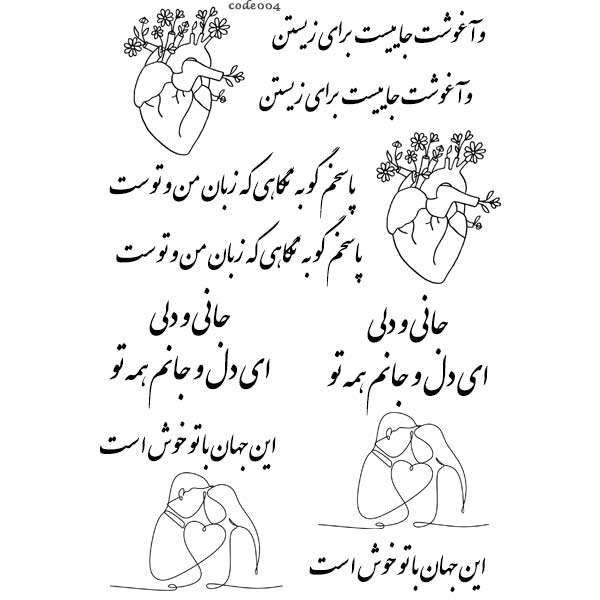 code004
وآغوشت جاییست برای زیستن
وآغوشت جاییست برای زیستن
پاسخم گو به نگاهی که زبان من و توست
پاسخم گو به نگاهی که زبان من و توست
جانی و دلی
ای دل و جانم همه تو
جانی و دلی
ای دل و جانم همه تو
این جهان با تو خوش است
این جهان با تو خوش است